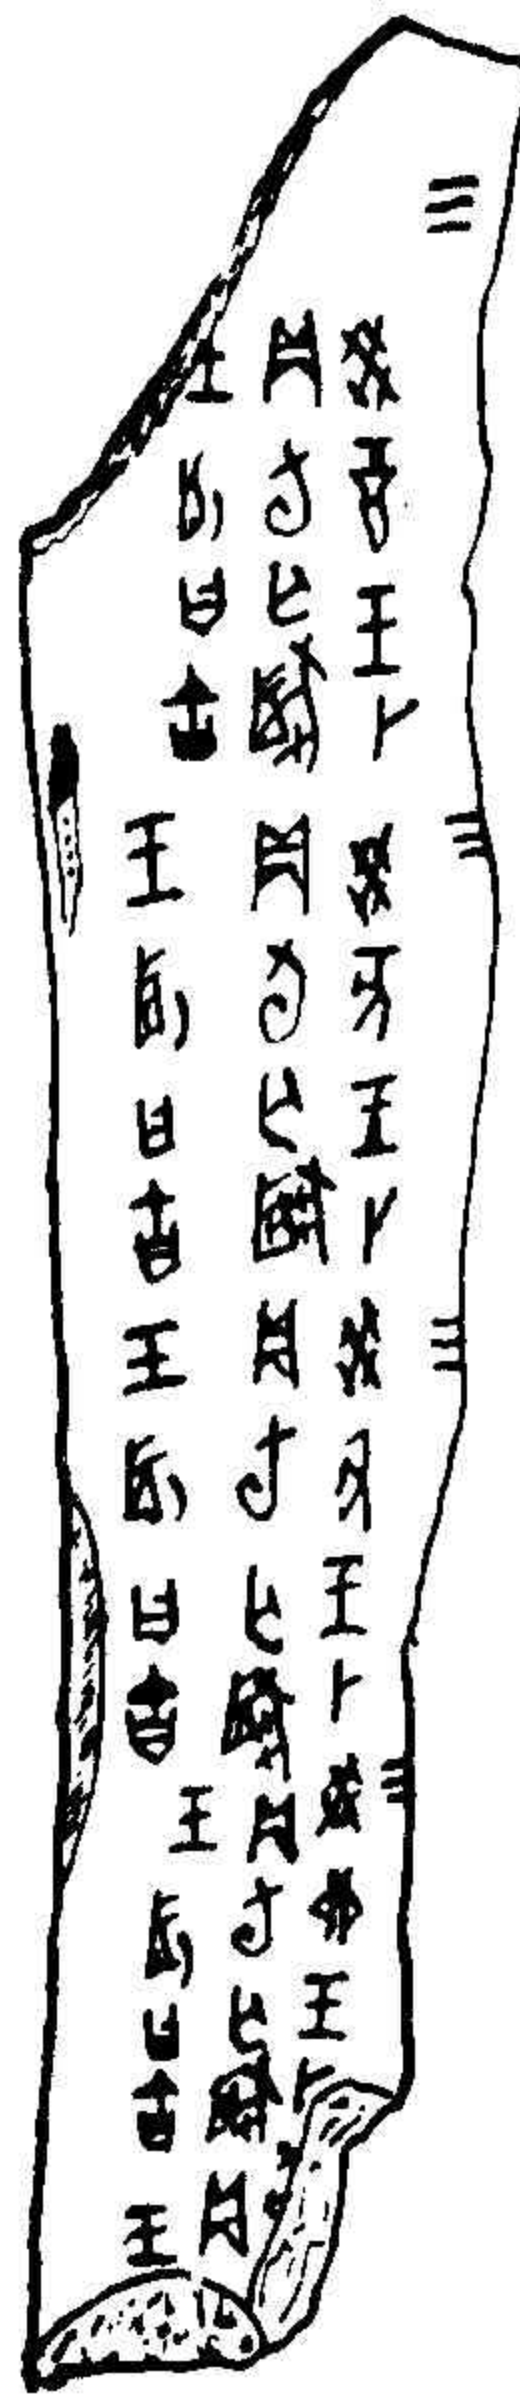 三
癸酉王卜
貞旬亡𡆥
王占曰吉
三
癸亥王卜
貞旬亡𡆥
王占曰吉
三
癸丑王卜
貞旬亡𡆥
王占曰吉
三
癸卯王卜
貞旬亡𡆥
王占曰吉
貞
王